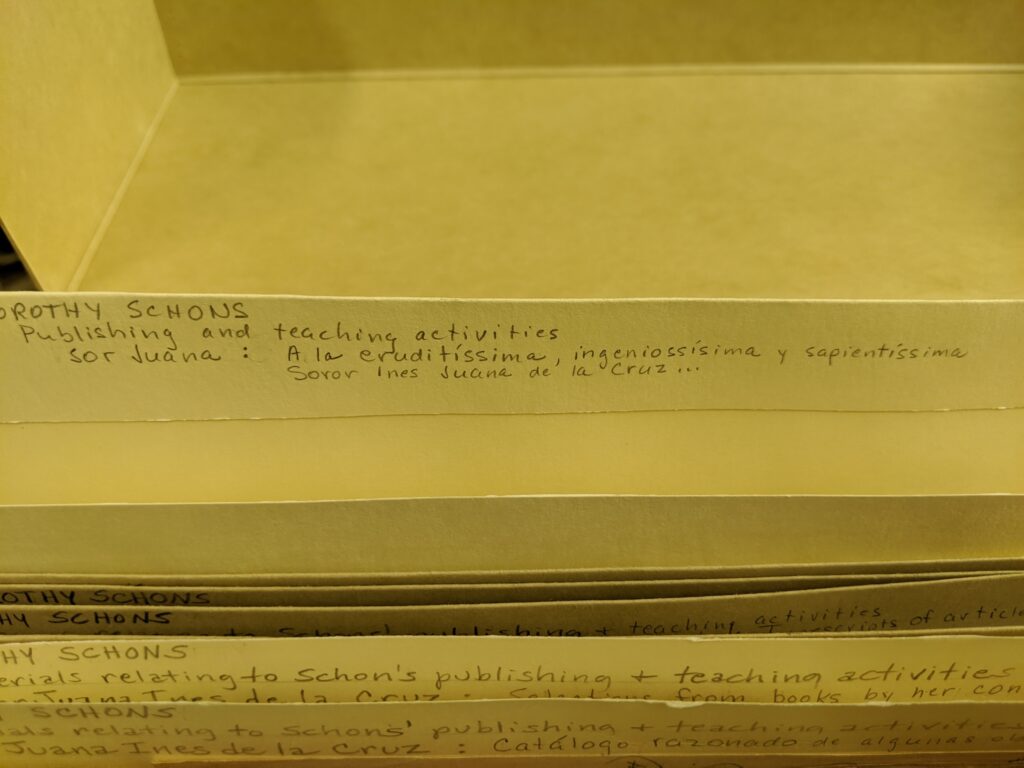 OROTHY SCHONS
Publishing and teaching activities
Sor Juana : A la eruditíssima, ingeniossísima y sapientíssima
Soror Ines Juana de la Cruz...
OTHY SCHONS
HY SCHONS
publishing + teaching activities
of article
HY SCHONS
erials relating to Schon's publishing + teaching activities
Juana Ines de la Cruz : Selections from books by her con
SCHONS
ials relating to Schons' publishing + teaching activities
Juana Ines de la Cruz : Catálogo razonado de algunas ob